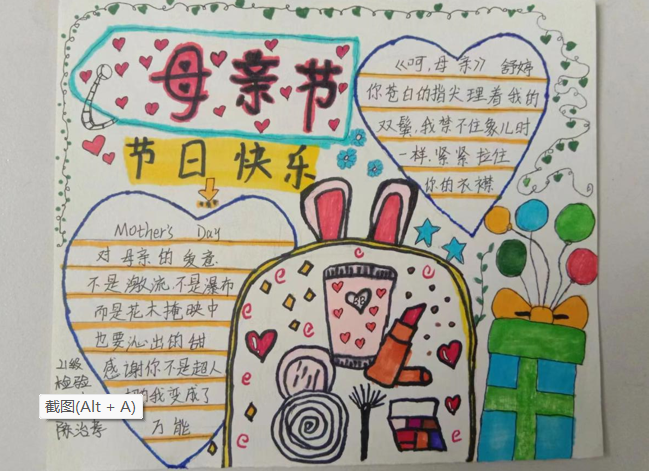 母亲节
节日快乐
《呵,母亲》 舒婷
你苍白的指尖理着我的
双鬓,我禁不住象儿时
一样.紧紧拉住
你的衣襟
Mother's Day
对母亲的爱意
不是激流.不是瀑布
而是花木掩映中
也要沁出的甜
感谢你不是超人
我变成了
万能
21级
检验
截图(Alt + A)